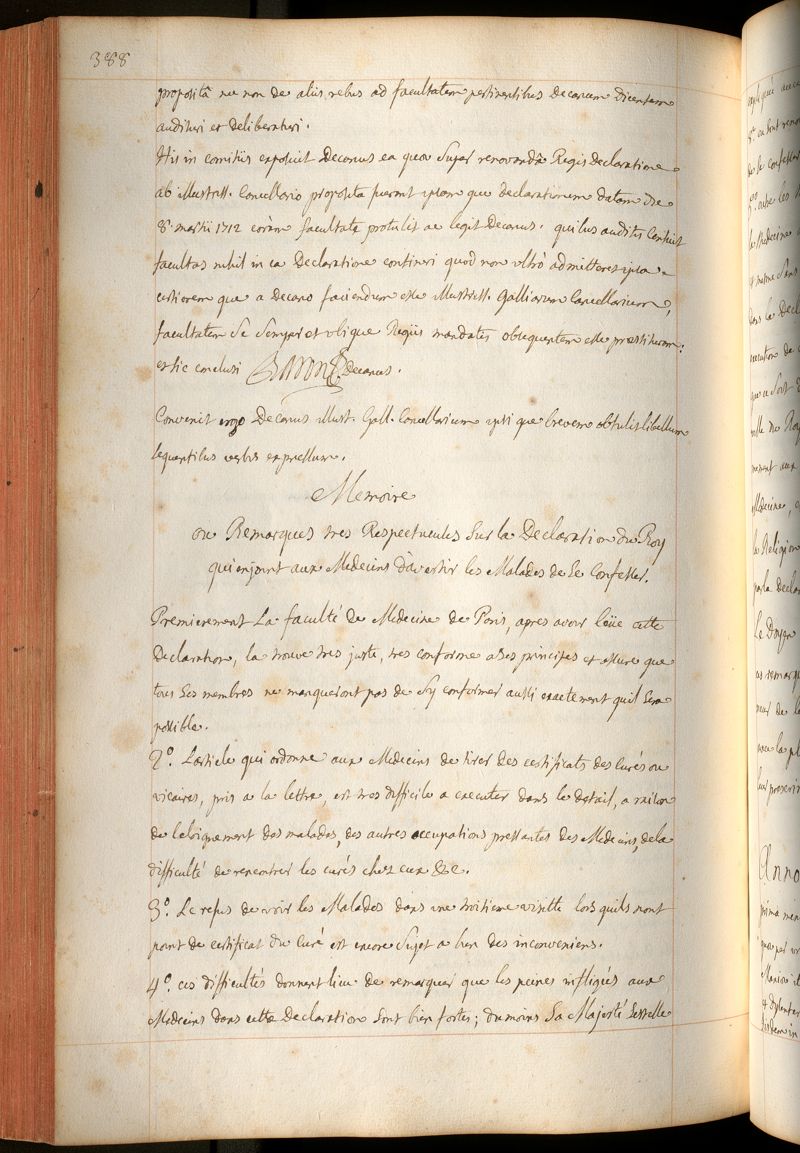 388
propositâ nec non de aliis rebus ad facultatem pertinentibus Decanum dicentem
audituri et deliberaturi.
His in comitiis exposuit Decanus ea quae super renovandâ Regis declaratione
ab illustriss. Cancellario proposita fuerunt ipsam que declarationem datam die
8.ª martii 1712 coràm facultate protulit ac legit Decanus. quibus auditis censuit
facultas nihil in ea Declaratione contineri quod non ultrò admitteret ipsa
certiorem que a Decano faciendum esse illustriss. Galliarum Cancellarium,
facultatem se semper et ubique Regiis mandatis obsequentem esse praestituram.
et sic conclusi Baron Decanus.
Convenit ergo Decanus illust. Gall. Cancellarium ipsi que brevem obtulit libellum
sequentibus verbis expressum.
Memoire
ou Remarques tres Respectueuses sur la Declaration du Roy
qui enjoint aux Medecins d'avertir les Malades de se Confesser.
Premierement La faculté de Medecine de Paris, apres avoir leüe cette
Declaration, la trouve tres juste, tres conforme a ses principes et assure que
tous ses membres ne manqueront pas de s'y conformer aussi exactement quil sera
possible.
2º. L'article qui ordonne aux Medecins de tirer des certificats des Curés ou
vicaires, pris a la lettre, est tres difficile a executer dans le detail, a raison
de l'eloignement des malades, des autres occupations pressantes des Medecins, de la
difficulté de rencontrer les curés chez eux &c.
3º. Le refus de voir les Malades dans une troisieme visitte lors quils n'ont
point de certificat du Curé est encore sujet a bien des inconveniens.
4º. ces difficultés donnent lieu de remarquer que les peines infligées aux
Medecins dans cette Declaration sont bien fortes; du moins Sa Majesté